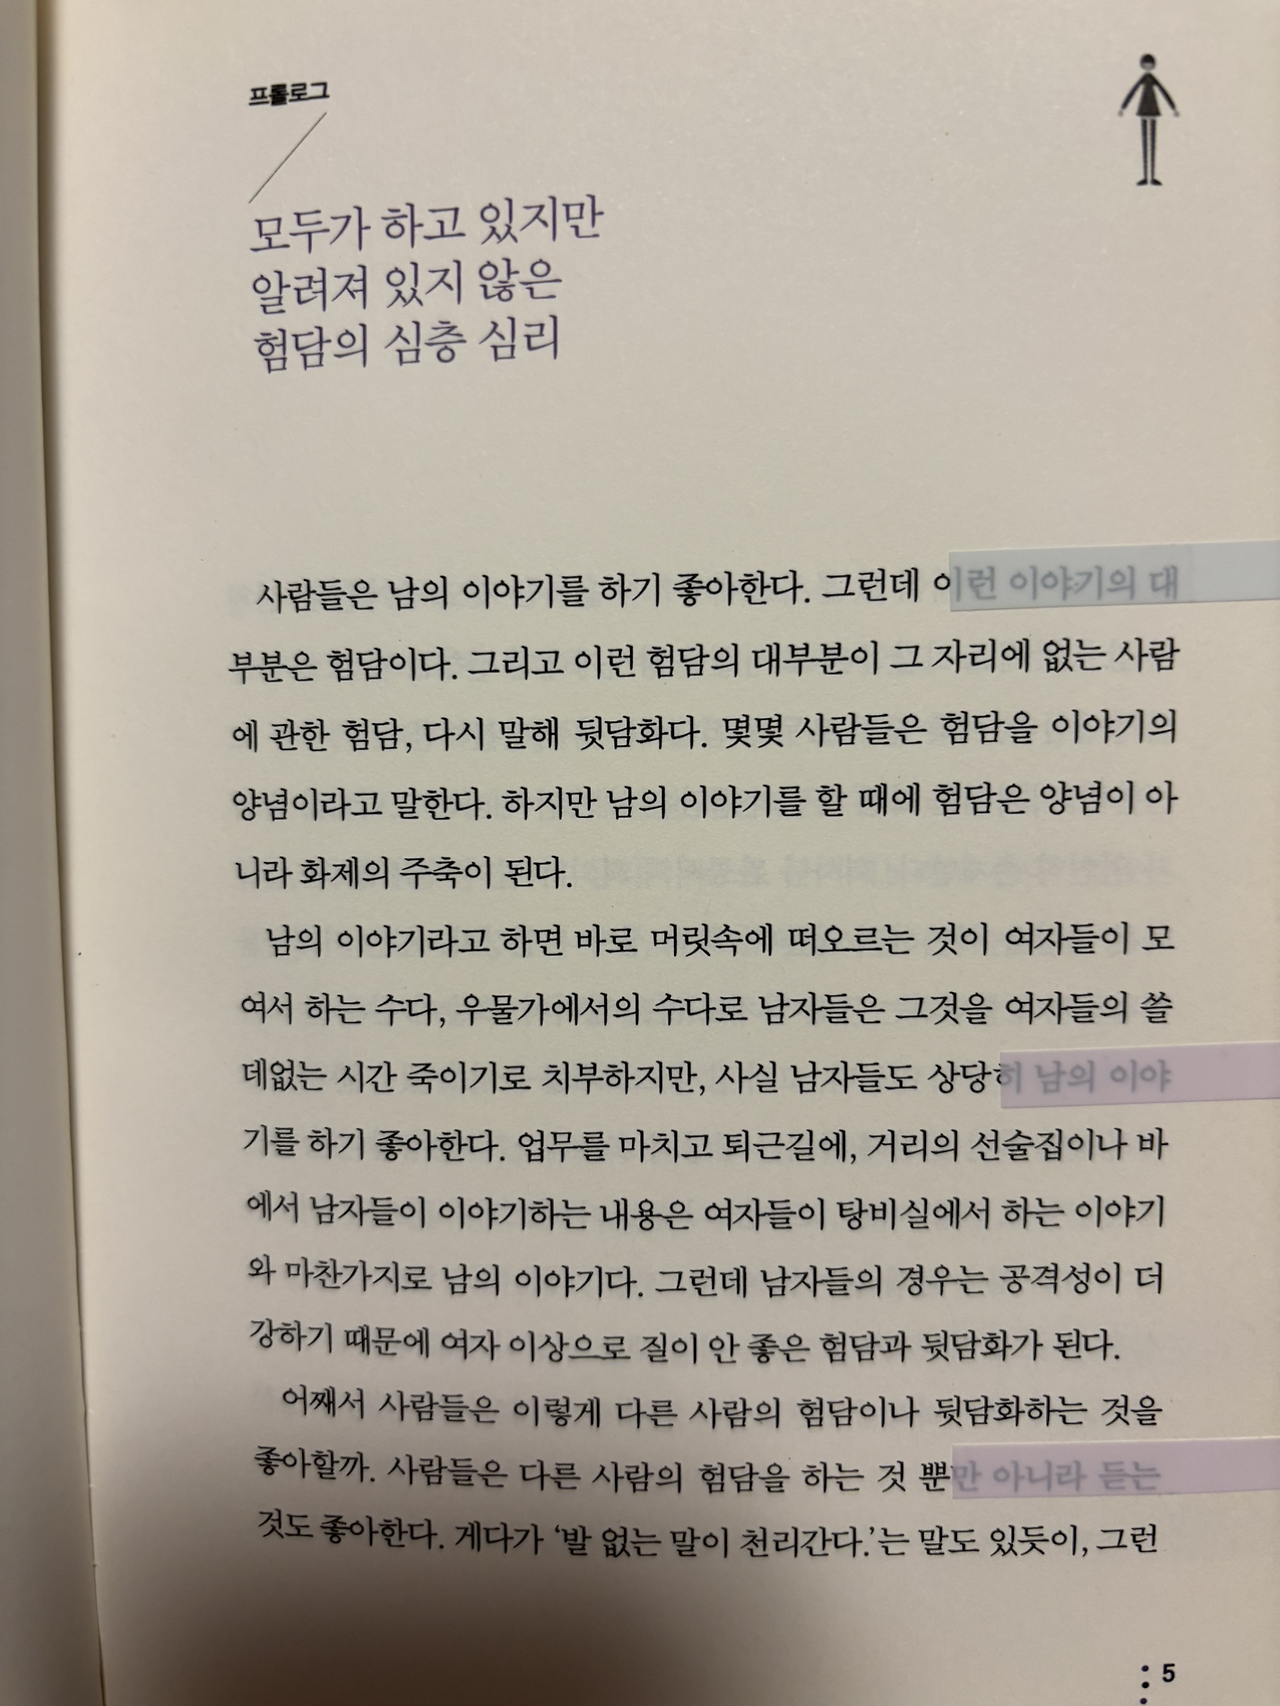 프롤로그
모두가 하고 있지만
알려져 있지 않은
험담의 심층 심리
사람들은 남의 이야기를 하기 좋아한다. 그런데 이런 이야기의 대
부분은 험담이다. 그리고 이런 험담의 대부분이 그 자리에 없는 사람
에 관한 험담, 다시 말해 뒷담화다. 몇몇 사람들은 험담을 이야기의
양념이라고 말한다. 하지만 남의 이야기를 할 때에 험담은 양념이 아
니라 화제의 주축이 된다.
남의 이야기라고 하면 바로 머릿속에 떠오르는 것이 여자들이 모
여서 하는 수다, 우물가에서의 수다로 남자들은 그것을 여자들의 쓸
데없는 시간 죽이기로 치부하지만, 사실 남자들도 상당히 남의 이야
기를 하기 좋아한다. 업무를 마치고 퇴근길에, 거리의 선술집이나 바
에서 남자들이 이야기하는 내용은 여자들이 탕비실에서 하는 이야기
와 마찬가지로 남의 이야기다. 그런데 남자들의 경우는 공격성이 더
강하기 때문에 여자 이상으로 질이 안 좋은 험담과 뒷담화가 된다.
어째서 사람들은 이렇게 다른 사람의 험담이나 뒷담화하는 것을
좋아할까. 사람들은 다른 사람의 험담을 하는 것 뿐만 아니라 듣는
것도 좋아한다. 게다가 ‘발 없는 말이 천리간다.’는 말도 있듯이, 그런
5